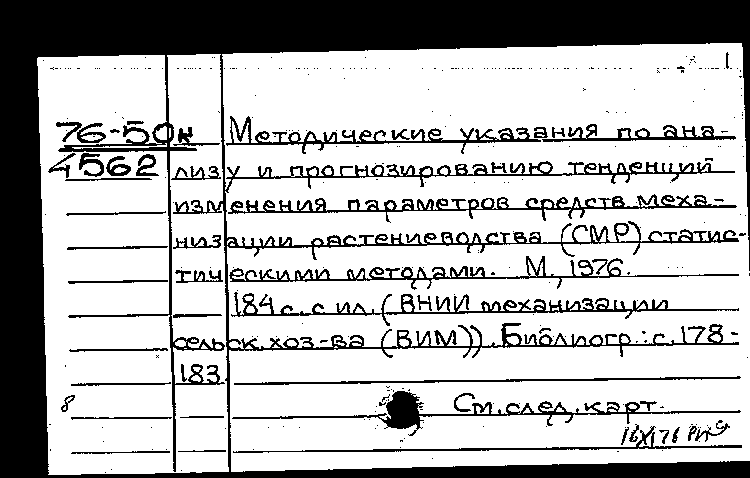 1
76-50н Методические указания по ана-
4562 лизу и прогнозированию тенденций
изменения параметров средств меха-
низации растениеводства (СМР) статис-
тическими методами. М., 1976.
184 с. с ил. (ВНИИ механизации
сельск. хоз-ва (ВИМ)). Библиогр.: с. 178-
183.
8 См. след. карт.